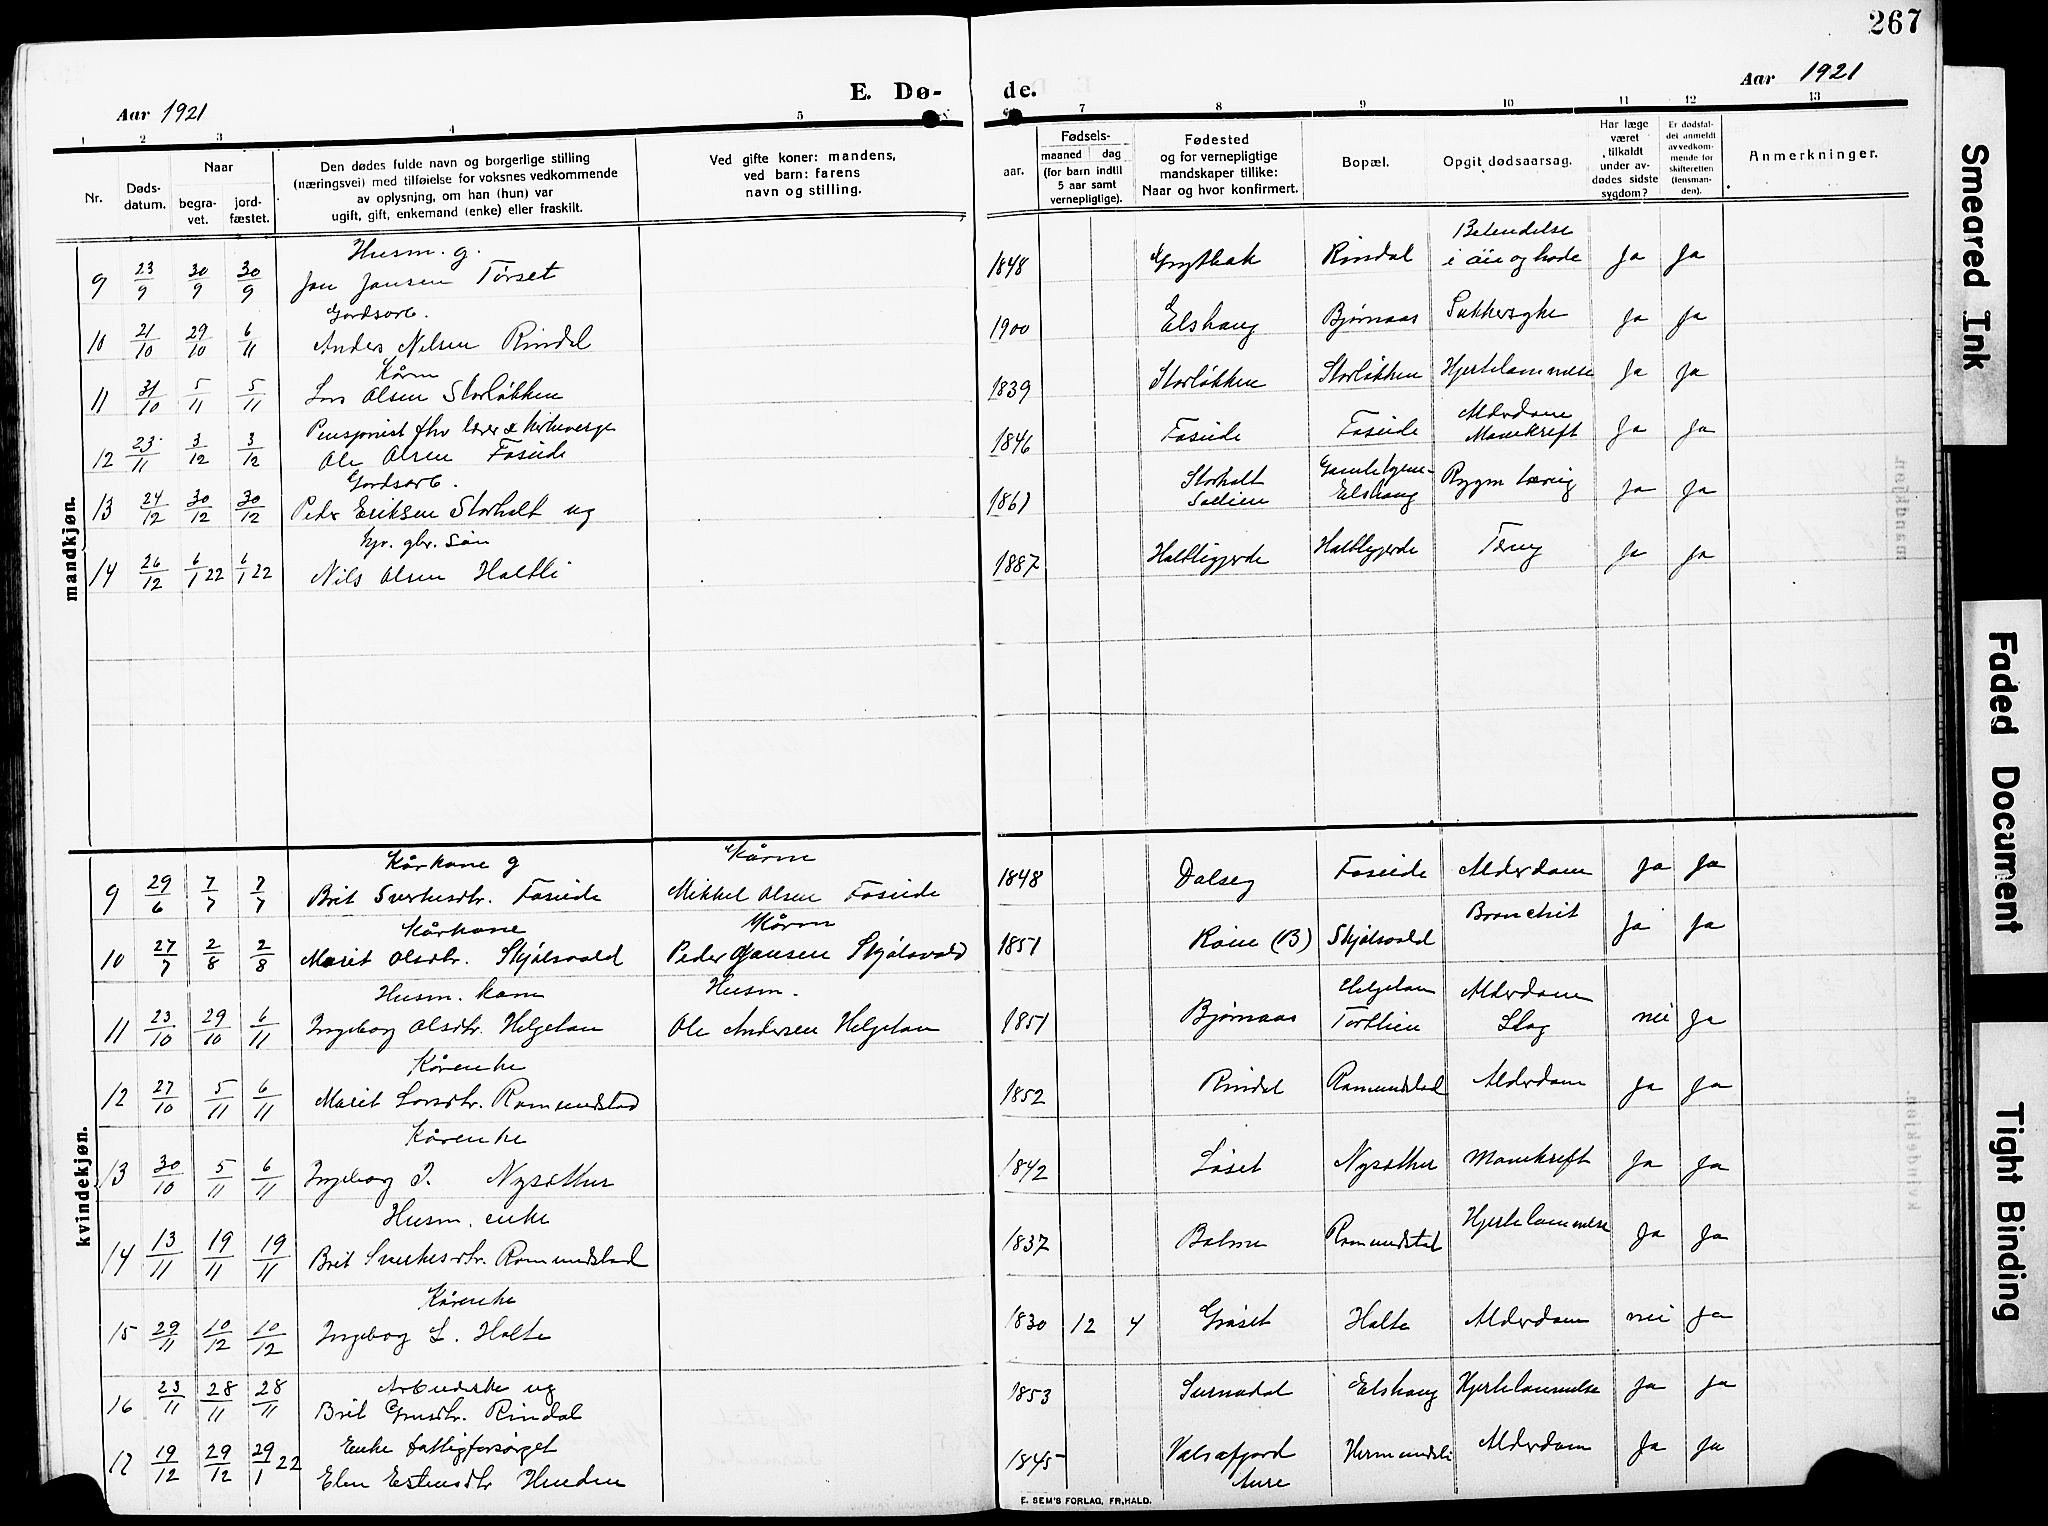 267
Aar 1921
E. Dø-
de.
Aar 1921
1 2 3 4 5 7 8 9 10 11 12 13
Nr.
Døds-
datum.
Naar
begra-
vet.
jord-
fæstet.
Den dødes fulde navn og borgerlige stilling
(næringsvei) med tilføielse for voksnes vedkommende
av oplysning, om han (hun) var
ugift, gift, enkemand (enke) eller fraskilt.
Ved gifte koner: mandens,
ved barn: farens
navn og stilling.
aar.
Fødsels-
maaned dag
(for barn indtil
5 aar samt
vernepligtige).
Fødested
og for vernepligtige
mandskaper tillike:
Naar og hvor konfirmert.
Bopæl.
Opgit dødsaarsag.
Har læge
været
tilkaldt
under av-
dødes sidste
sygdom?
Er dødsfal-
det anmeldt
av vedkom-
mende for
skifteretten
(lensman-
den).
Anmerkninger.
mandkjøn.
Husm. g. Betendelse
9 23/9 30/9 30/9 Jon Jonsen Tørset 1848 Rindal i øie og hode Ja Ja
Gardsarb.
10 21/10 29/10 6/11 Anders Nilsen Rindal 1900 Elshaug Bjørnaas Sukkersyke Ja Ja
Kårm
11 31/10 5/11 5/11 Lars Olsen Storløkken 1839 Storløkken Storløkken Hjertelammelse Ja Ja
Pensjonist fhv lærer & kirkeverge Alderdom
12 23/11 3/12 3/12 Ole Olsen Faseide 1846 Faseide Faseide Mavekreft Ja Ja
Gardsarb. Storholt
13 24/12 30/12 30/12 Peder Eriksen Storholt ug 1867 Elshaug Rygm tæring Ja Ja
gbr. søn
14 26/12 6/1 22 6/1 22 Nils Olsen Haltli 1887 Haltligjerde Haltligjerde Tæring Ja Ja
kvindekjøn.
Kårkone g Kårm
9 29/6 7/7 7/7 Brit Sverkesdtr. Faseide Mikkel Olsen Faseide 1848 Dalseg Faseide Alderdom Ja Ja
Kårkone Kårm
10 27/7 2/8 2/8 Marit Olsdtr. Skjølsvold Peder Hansen Skjølsvold 1851 Røen (B) Skjølsvold Bronchit Ja Ja
Husm. kone Husm. Helgetun Alderdom
11 23/10 29/10 6/11 Ingeborg Olsdtr. Helgetun Ole Andersen Helgetun 1851 Bjørnaas Tortlien Slag nei Ja
Kårenke
12 27/10 5/11 6/11 Marit Larsdtr. Romundstad 1852 Rindal Romundstad Alderdom Ja Ja
Kårenke
13 30/10 5/11 6/11 Ingeborg J. Nysæther 1842 Løset Nysæther Mavekreft Ja Ja
Husm. enke
14 13/11 19/11 19/11 Brit Sverkesdtr. Romundstad 1837 Bolme Romundstad Hjertelammelse Ja Ja
Kårenke
15 29/11 10/12 10/12 Ingeborg L. Holte 1830 12 4 Grøset Holte Alderdom nei Ja
Arbeiderske ug
16 23/11 28/11 28/11 Brit Rindal 1853 Surnadal Elshaug Hjertelammelse Ja Ja
Enke fattigforsørget
17 19/12 29/12 29/1 22 Elen Estensdtr Henden 1845 Valsøfjord Hermundsli Alderdom Ja Ja
Aure
E. SEM'S FORLAG, FR.HALD.
Smeared Ink
Faded Document
Tight Binding